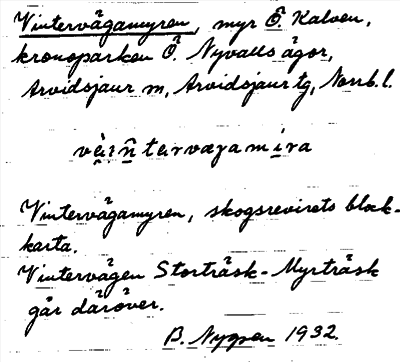 Vintervägamyren, myr Ö Kalven,
kronoparken Ö. Nyvalls ägor,
Arvidsjaur m, Arvidsjaur tg, Norrb. l.
Vintervägamyren, skogsrevirets block-
karta.
Vintervägen Storträsk - Myrträsk
går däröver.
B. Nygren 1932.